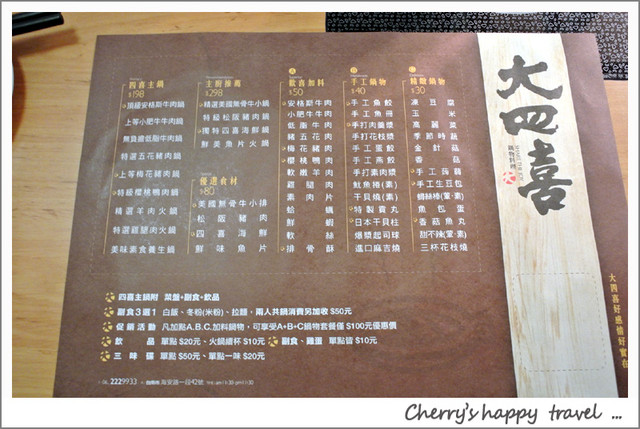 大四喜
鍋物料理
四喜主鍋
$198
頂級安格斯牛肉鍋
上等小肥牛牛肉鍋
無負擔低脂牛肉鍋
特選五花豬肉鍋
上等梅花豬肉鍋
特級櫻桃鴨肉鍋
精選羊肉火鍋
特選雞腿肉火鍋
美味素食養生鍋
主廚推薦
$298
精選美國無骨牛小鍋
特級松阪豬肉鍋
獨特四喜海鮮鍋
鮮美魚片火鍋
優選食材
$80
美國無骨牛小排
松阪豬肉
四喜海鮮
鮮味魚片
歡喜加料
$50
安格斯牛肉
小肥牛牛肉
低脂牛肉
豬五花肉
梅花豬肉
櫻桃鴨肉
軟嫩羊肉
雞腿肉
素肉片
蛤蠣
鮮蝦
軟絲
排骨酥
手工鍋物
$40
手工魚餃
手工魚冊
手打肉羹漿
手打花枝漿
手工蛋餃
手工燕餃
手打素肉漿
魷魚捲(素)
干貝燒(素)
特製貢丸
日本干貝柱
爆漿起司球
進口麻吉燒
精緻鍋物
$30
凍豆腐
玉米
高麗菜
季節時蔬
金針菇
香菇
手工蒟蒻
手工生豆包
蝴絲棒(葷‧素)
魚包蛋
香菇魚丸
甜不辣(葷‧素)
三杯花枝燒
四喜主鍋附 菜盤+副食+飲品
副食3選1 白飯、冬粉(米粉)、拉麵，兩人共鍋消費另加收$50元
促銷活動 凡加點A.B.C.加料鍋物，可享受A+B+C鍋物套餐僅$100元優惠價
飲品 單點$20元、火鍋續杯$10元 副食、雞蛋 單點皆$10元
三味碟 單點$50元、單點一味$20元
06. 2229933 台南市 海安路一段42號
大四喜好感情好實在
Cherry's happy travel ...